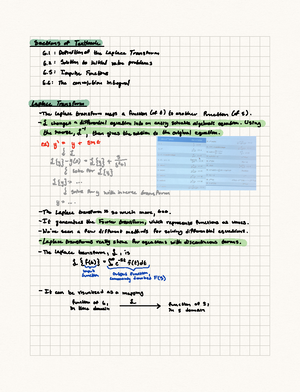 Sections of Textbook
6.1 : Definition of the Laplace Transform
6.2 : Solution to Initial Value Problems
6.5 : Impulse Functions
6.6 : The Convolution Integral
Laplace Transform
- The Laplace transform maps a function (of t) to another function (of s).
- L changes a differential equation into an easily solvable algebraic equation. Using
the inverse, L⁻¹, then gives the solution to the original equation.
ex) y' = y +
↓ L
L{y'} - y(0) = L{y} +
↓ solve for L{y}
L{y} = ...
↓ solve for y with inverse transform
y = ...
- The Laplace transform is so much more, too.
- It generalizes the Fourier transform, which represents functions as waves.
- We've seen a few different methods for solving differential equations.
- Laplace transforms really shine for equations with discontinuous terms.
- The Laplace transform, L, is
L{f(t)} = ∫ e^-st f(t) dt
input function
output function, commonly denoted F(s)
- It can be visualized as a mapping
function of t, L function of s,
in time domain → in s domain